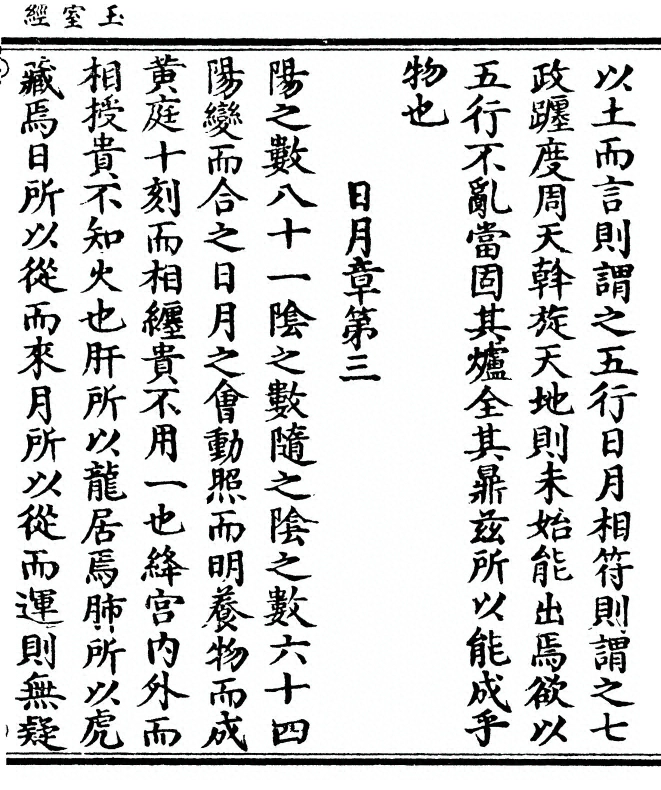 玉室經
以土而言則謂之五行日月相符則謂之七
政躔度周天斡旋天地則未始能出焉欲以
五行不亂當固其爐全其鼎兹所以能成乎
物也
日月章第三
陽之數八十一陰之數隨之陰之數六十四
陽變而合之日月之會動照而明養物而成
黄庭十刻而相纏貴不用一也絳宫内外而
相授貴不知火也肝所以龍居焉肺所以虎
藏焉日所以從而來月所以從而運則無疑